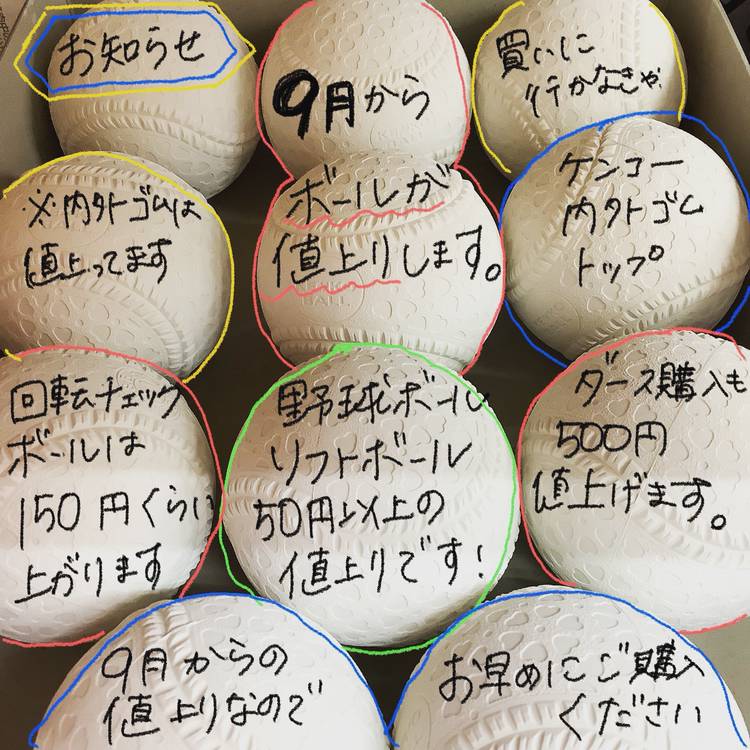 お知らせ
9月から
買いに
行かなきゃ
※内外ゴムは
値上ってます
ボールが
値上りします。
ケンコー
内外ゴム
トップ
回転チェック
ボールは
150円くらい
上がります
野球ボール
ソフトボール
50円以上の
値上りです!
ダース購入も
500円
値上げます。
9月からの
値上りなので
お早めにご購入
ください